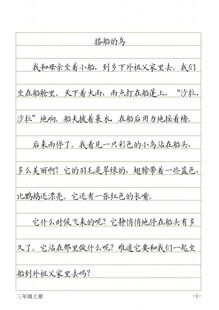 搭船的鸟
我和母亲坐着小船，到乡下外祖父家里去。我们
坐在船舱里。天下着大雨，雨点打在船篷上，“沙啦，
沙啦”地响。船夫披着蓑衣，在船后用力地摇着橹。
后来雨停了。我看见一只彩色的小鸟站在船头，
多么美丽啊！它的羽毛是翠绿的，翅膀带着一些蓝色，
比鹦鹉还漂亮。它还有一张红色的长嘴。
它什么时候飞来的呢？它静悄悄地停在船头有多
久了。它站在那里做什么呢？难道它要和我们一起坐
船到外祖父家里去吗？
三年级上册
-6-